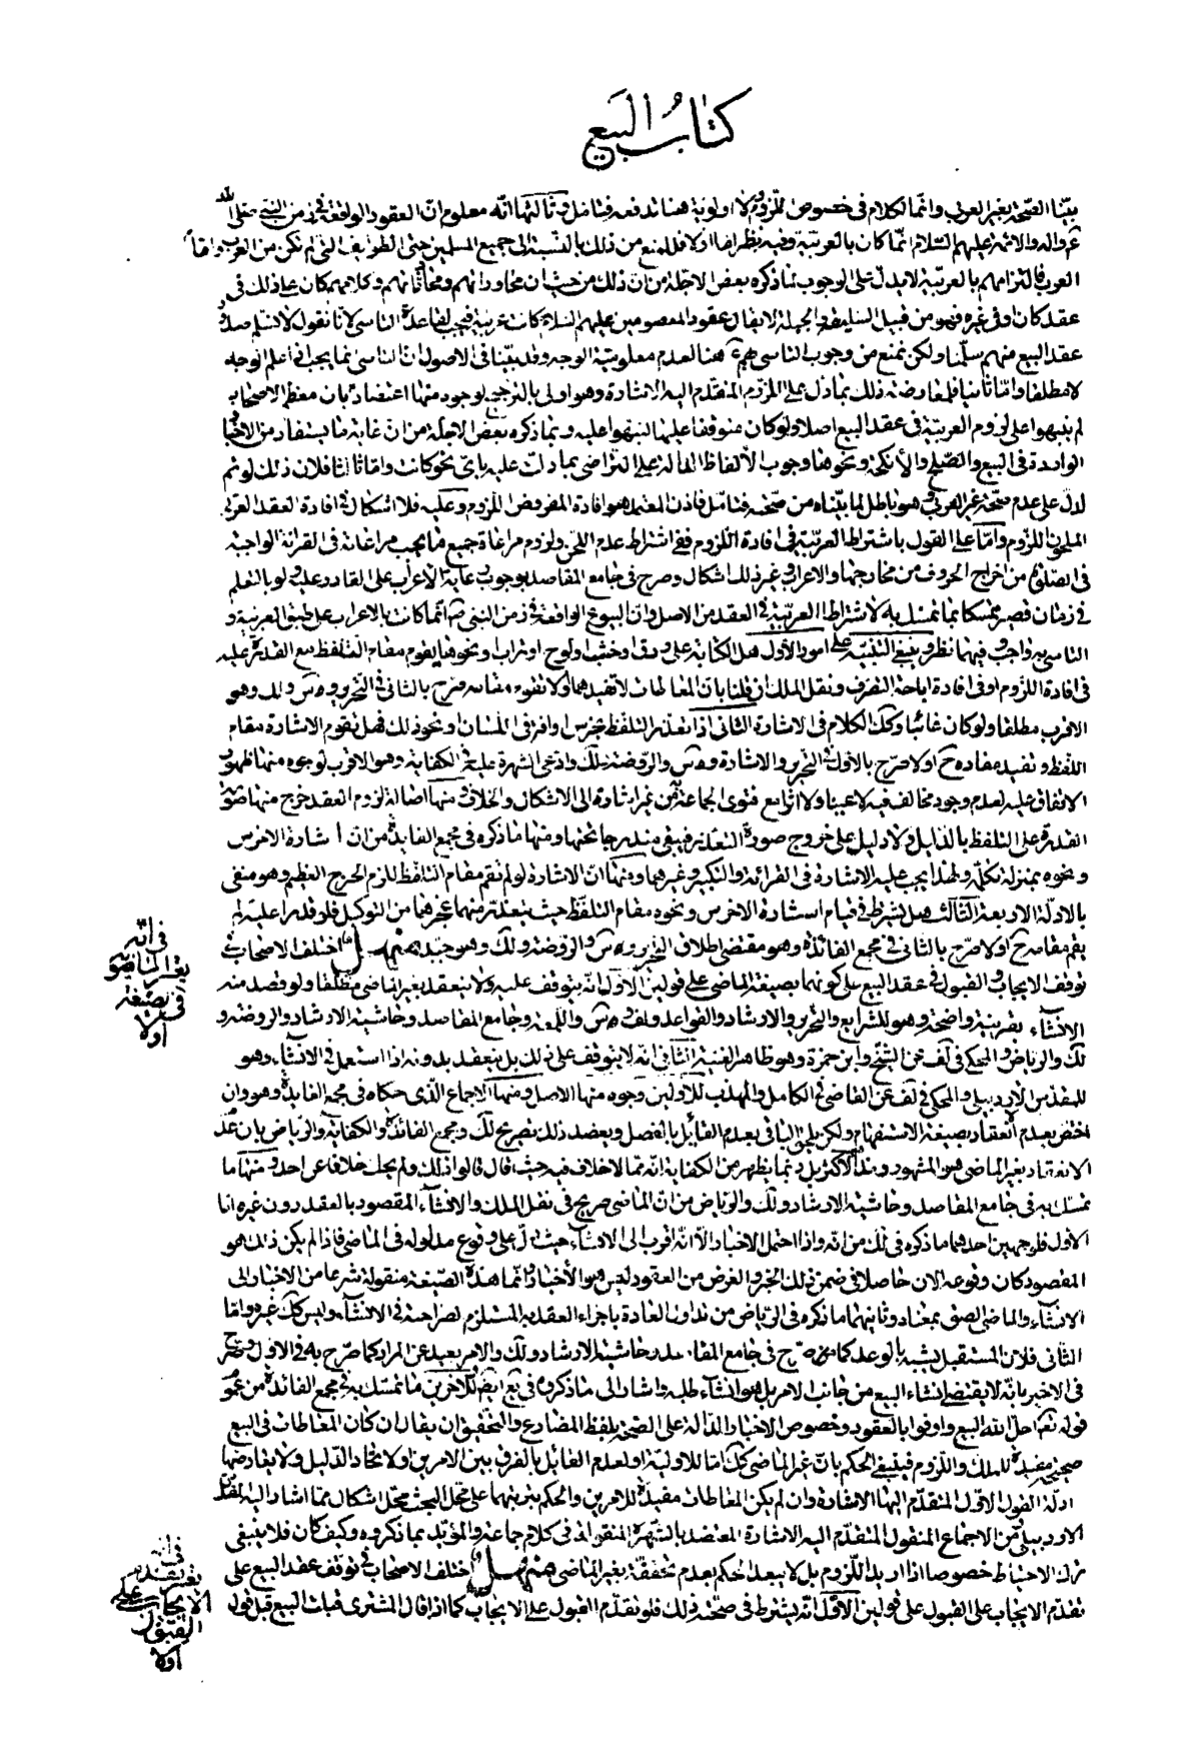 كتاب البيع
بيّنا الصّحة بغير العربى وانّما الكلام فى خصوص اللزوم ولا اولويّة هنا تدفعه فتامل وثالثها انّه معلوم انّ العقود الواقعة فى زمن النبى صلى الله
عليه واله والائمة عليهم السّلام انّما كان بالعربيّة وفيه نظر امّا اولا فللمنع من ذلك بالنسبة الى جميع المسلمين حتى الطوايف التى لم تكن من العرب وامّا
العرب فالتزامهم بالعربيّة لا يدلّ على الوجوب لما ذكره بعض الاجلة من انّ ذلك من حيث ان محاوراتهم ومخاطباتهم وكلامهم كان على ذلك فى
عقد كان او فى غيره فهو من قبيل السليقة والجبلة لا يقال عقود المعصومين عليهم السّلام كانت عربية فيجب لقاعدة التاسى لانا نقول لا نسلم صدور
عقد البيع منهم سلّمنا ولكن نمنع من وجوب التاسى بهم هنا لعدم معلوميّة الوجه وقد بيّنا فى الاصول انّ التاسى انما يجب اذا علم الوجه
لا مطلقا وامّا ثانيا فلمعارضة ذلك بما دل على اللزوم المتقدّم اليه الاشارة وهو اولى بالترجيح لوجوه منها اعتضاده بان معظم الاصحاب
لم ينبهوا على لزوم العربيّة فى عقد البيع اصلا ولو كان متوقفا عليها لنبهوا عليه وبما ذكره بعض الاجلة من انّ غاية ما يستفاد من الاخبار
الواردة فى البيع والصّلح والأنكحة ونحوها وجوب الألفاظ الدالة على التراضى بما دلت عليه باىّ نحو كانت وامّا ثالثا فلان ذلك لو تم
لدلّ على عدم صحّة غير العربى وهو باطل لما بيّناه من صحّته فتامّل فاذن المعتمد هو افادة المفروض اللزوم وعليه فلا اشكال فى افادة العقد العربى
الملحون اللزوم وامّا على القول باشتراط العربيّة فى افادة اللّزوم ففى اشتراط عدم اللحن ولزوم مراعاة جميع ما يجب مراعاته فى القرائة الواجبة
فى الصّلوة من اخراج الحروف من مخارجها والاعراب وغير ذلك اشكال وصرح فى جامع المقاصد بوجوب رعاية الأعراب على القادر عليه ولو بالتعلم
فى زمان قصير تمسكا بما تمسّك به لاشتراط العربيّة فى العقد من الاصل وانّ البيوع الواقعة فى زمن النبى ص انّما كانت بالاعراب على طبق العربية و
التاسى به واجب وفيهما نظر وينبغى التنبيه على امور الأول هل الكتابة على ورق او خشب او لوح او تراب ونحوها يقوم مقام التلفظ مع القدرة عليه
فى افادة اللزوم او فى افادة اباحة التصرف ونقل الملك ان قلنا بانّ المعاطات لا تفيدهما او لا تقوم مقامه صرح بالثانى فى التحرير و س ولك وهو
الاقرب مطلقا ولو كان غائبا وكك الكلام فى الاشارة الثانى اذا تعذّر التلفظ بخرس او افة فى اللسان او نحو ذلك فهل تقوم الاشارة مقام
اللفظ وتفيد مفاده ح او لا صرّح بالأول فى التحرير والارشاد و س والرّوضة ولك وادعى الشهرة عليه فى الكفاية وهو الاقرب لوجوه منها ظهور
الاتفاق عليه لعدم وجود مخالف فيه لا عينا ولا اثرا مع فتوى الجماعة من غير اشارة الى الاشكال والخلاف ومنها اصالة لزوم العقد خرج منها صورة
القدرة على التلفظ بالدليل ولا دليل على خروج صورة التعذّر فيبقى مندرجا تحتها ومنها ما ذكره فى مجمع الفايدة من ان اشارة الاخرس
ونحوه بمنزلة تكلّمه ولهذا يجب عليه الاشارة فى القرائة والتكبير وغيرهما ومنها انّ الاشارة لو لم تقم مقام التلفظ للزم الحرج العظيم وهو منفى
بالادلّة الاربعة الثّالث هل يشترط فى قيام اشارة الاخرس ونحوه مقام التلفّظ حيث يتعذر منهما عجزهما من التوكيل فلو قدرا عليه لم
يقم مقامه ح او لا صرح بالثانى فى مجمع الفائدة وهو مقتضى اطلاق التحرير و س والروضة ولك وهو جيّد منهل اختلف الاصحاب فى
توقف الايجاب والقبول فى عقد البيع على كونهما بصيغة الماضى على قولين الأوّل انّه يتوقف عليه ولا ينعقد بغير الماضى مطلقا ولو قصد منه
الانشاء بقرينة واضحة وهو للشرايع والتحرير والارشاد والقواعد ولف و س واللمعة وجامع المقاصد وحاشية الارشاد والروضة و
لك والرياض والمحكى فى لف عن الشّيخ وابن حمزة وهو ظاهر الغنية الثّانى انّه لا يتوقف على ذلك بل ينعقد بدونه اذا استعمل فى الانشاء وهو
للمقدّس الأردبيلى والمحكى فى لف عن القاضى فى الكامل والمهذب للأولين وجوه منها الاصل ومنها الاجماع الّذى حكاه فى مجمع الفايدة وهو وان
اختص بعدم انعقاد بصيغة الاستفهام ولكن يلحق الباقى بعدم القائل بالفصل ويعضد ذلك تصريح لك ومجمع الفائدة والكفاية والرّياض بان عدم
الانعقاد بغير الماضى هو المشهور وعند الأكثر بل ربما يظهر من الكفاية انّه مما لا خلاف فيه حيث قال قالوا ذلك ولم يحك خلافا عن احد ومنها ما
تمسّك به فى جامع المقاصد وحاشية الارشاد ولك والرّياض من انّ الماضى صريح فى نقل الملك والانشاء المقصود بالعقد دون غيره امّا
الأول فلوجهين احدهما ما ذكره فى لك من انّه واذا احتمل الاخبار الّا انّه اقرب الى الانشاء حيث دلّ على وقوع مدلوله فى الماضى فاذا لم يكن ذلك هو
المقصود كان وقوعه الان حاصلا فى ضمن ذلك الخبر والغرض من العقود ليس هو الأخبار وانّما هذه الصّيغة منقولة شرعا من الاخبار الى
الانشاء والماضى الصق بمعناه وثانيهما ما ذكره فى الرّياض من تداول العادة باجراء العقد به المستلزم لصراحته فى الانشاء وليس كك غيره وامّا
الثّانى فلان المستقبل يشبه بالوعد كما صرّح فى جامع المقاصد وحاشية الارشاد ولك والامر بعيد عن المراد كما صرّح به فى الاول وصرح
فى الاخير بانّه لا يقتضى انشاء البيع من جانب الامر بل هو انشاء طلبه واشار الى ما ذكره فى ايضا للآخرين ما تمسّك به فى مجمع الفائدة من عموم
قوله تعالى احلّ الله البيع واوفوا بالعقود وخصوص الاخبار الدّالة على الصّحة بلفظ المضارع والتحقيق ان يقال ان كان المعاطات فى البيع
صحيحى مفيدة للملك واللّزوم فينبغى الحكم بانّ غير الماضى كك امّا للاولية او لعدم القائل بالفرق بين الامرين او لاتحاد الدّليل ولا يعارضها
ادلة القول الاول المتقدّم اليها الاشارة وان لم يكن المعاطات مفيدة للامرين والحكم بترتبهما على محل البحث محلّ اشكال مما اشار اليه المقدّس
الاردبيلى من الاجماع المنقول المتقدّم اليه الاشارة المعتضد بالشهرة المنقولة فى كلام جماعة والمؤيّد بما ذكروه وكيف كان فلا ينبغى
ترك الاحتياط خصوصا اذا اريد اللّزوم بل لا يبعد الحكم بعدم تحققه بغير الماضى منهل اختلف الاصحاب فى توقف عقد البيع على
تقدّم الايجاب على القبول على قولين الأوّل انّه يشترط فى صحّته ذلك فلو تقدّم القبول على الايجاب كما اذا قال المشترى قبلت البيع قبل قول
فى انّه
بغير الماضى
فى صيغة
اولا
فى انه
يعتبر تقديم
الايجاب على
القبول
اولا